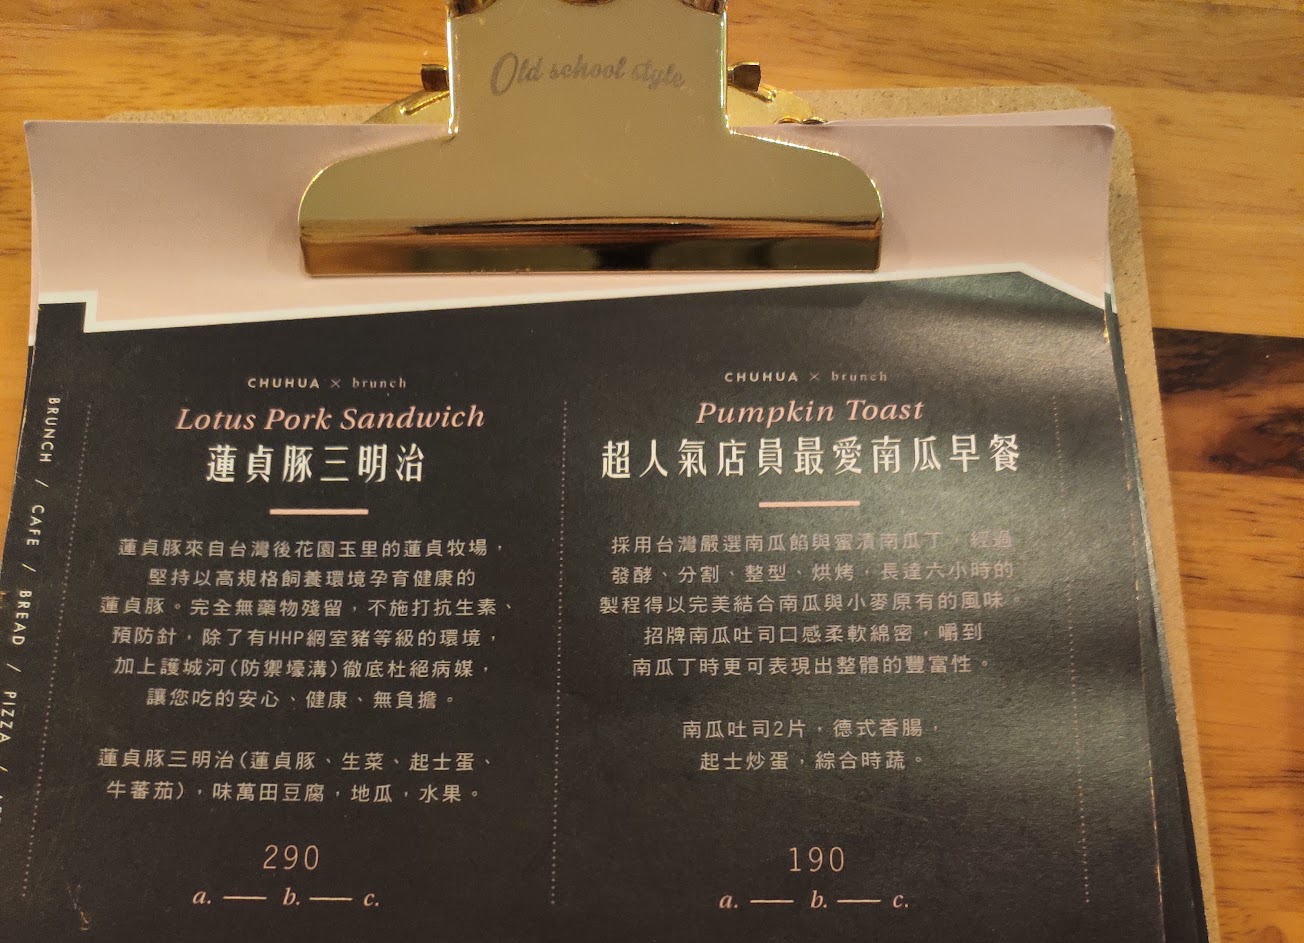 Old school style
BRUNCH / CAFE / BREAD / PIZZA /
CHUHUA × brunch
Lotus Pork Sandwich
蓮貞豚三明治
蓮貞豚來自台灣後花園玉里的蓮貞牧場，
堅持以高規格飼養環境孕育健康的
蓮貞豚。完全無藥物殘留，不施打抗生素、
預防針，除了有HHP網室豬等級的環境，
加上護城河(防禦壕溝)徹底杜絕病媒，
讓您吃的安心、健康、無負擔。
蓮貞豚三明治(蓮貞豚、生菜、起士蛋、
牛蕃茄)，味萬田豆腐，地瓜，水果。
290
a. — b. — c.
CHUHUA × brunch
Pumpkin Toast
超人氣店員最愛南瓜早餐
採用台灣嚴選南瓜餡與蜜漬南瓜丁，經過
發酵、分割、整型、烘烤，長達六小時的
製程得以完美結合南瓜與小麥原有的風味。
招牌南瓜吐司口感柔軟綿密，嚼到
南瓜丁時更可表現出整體的豐富性。
南瓜吐司2片，德式香腸，
起士炒蛋，綜合時蔬。
190
a. — b. — c.